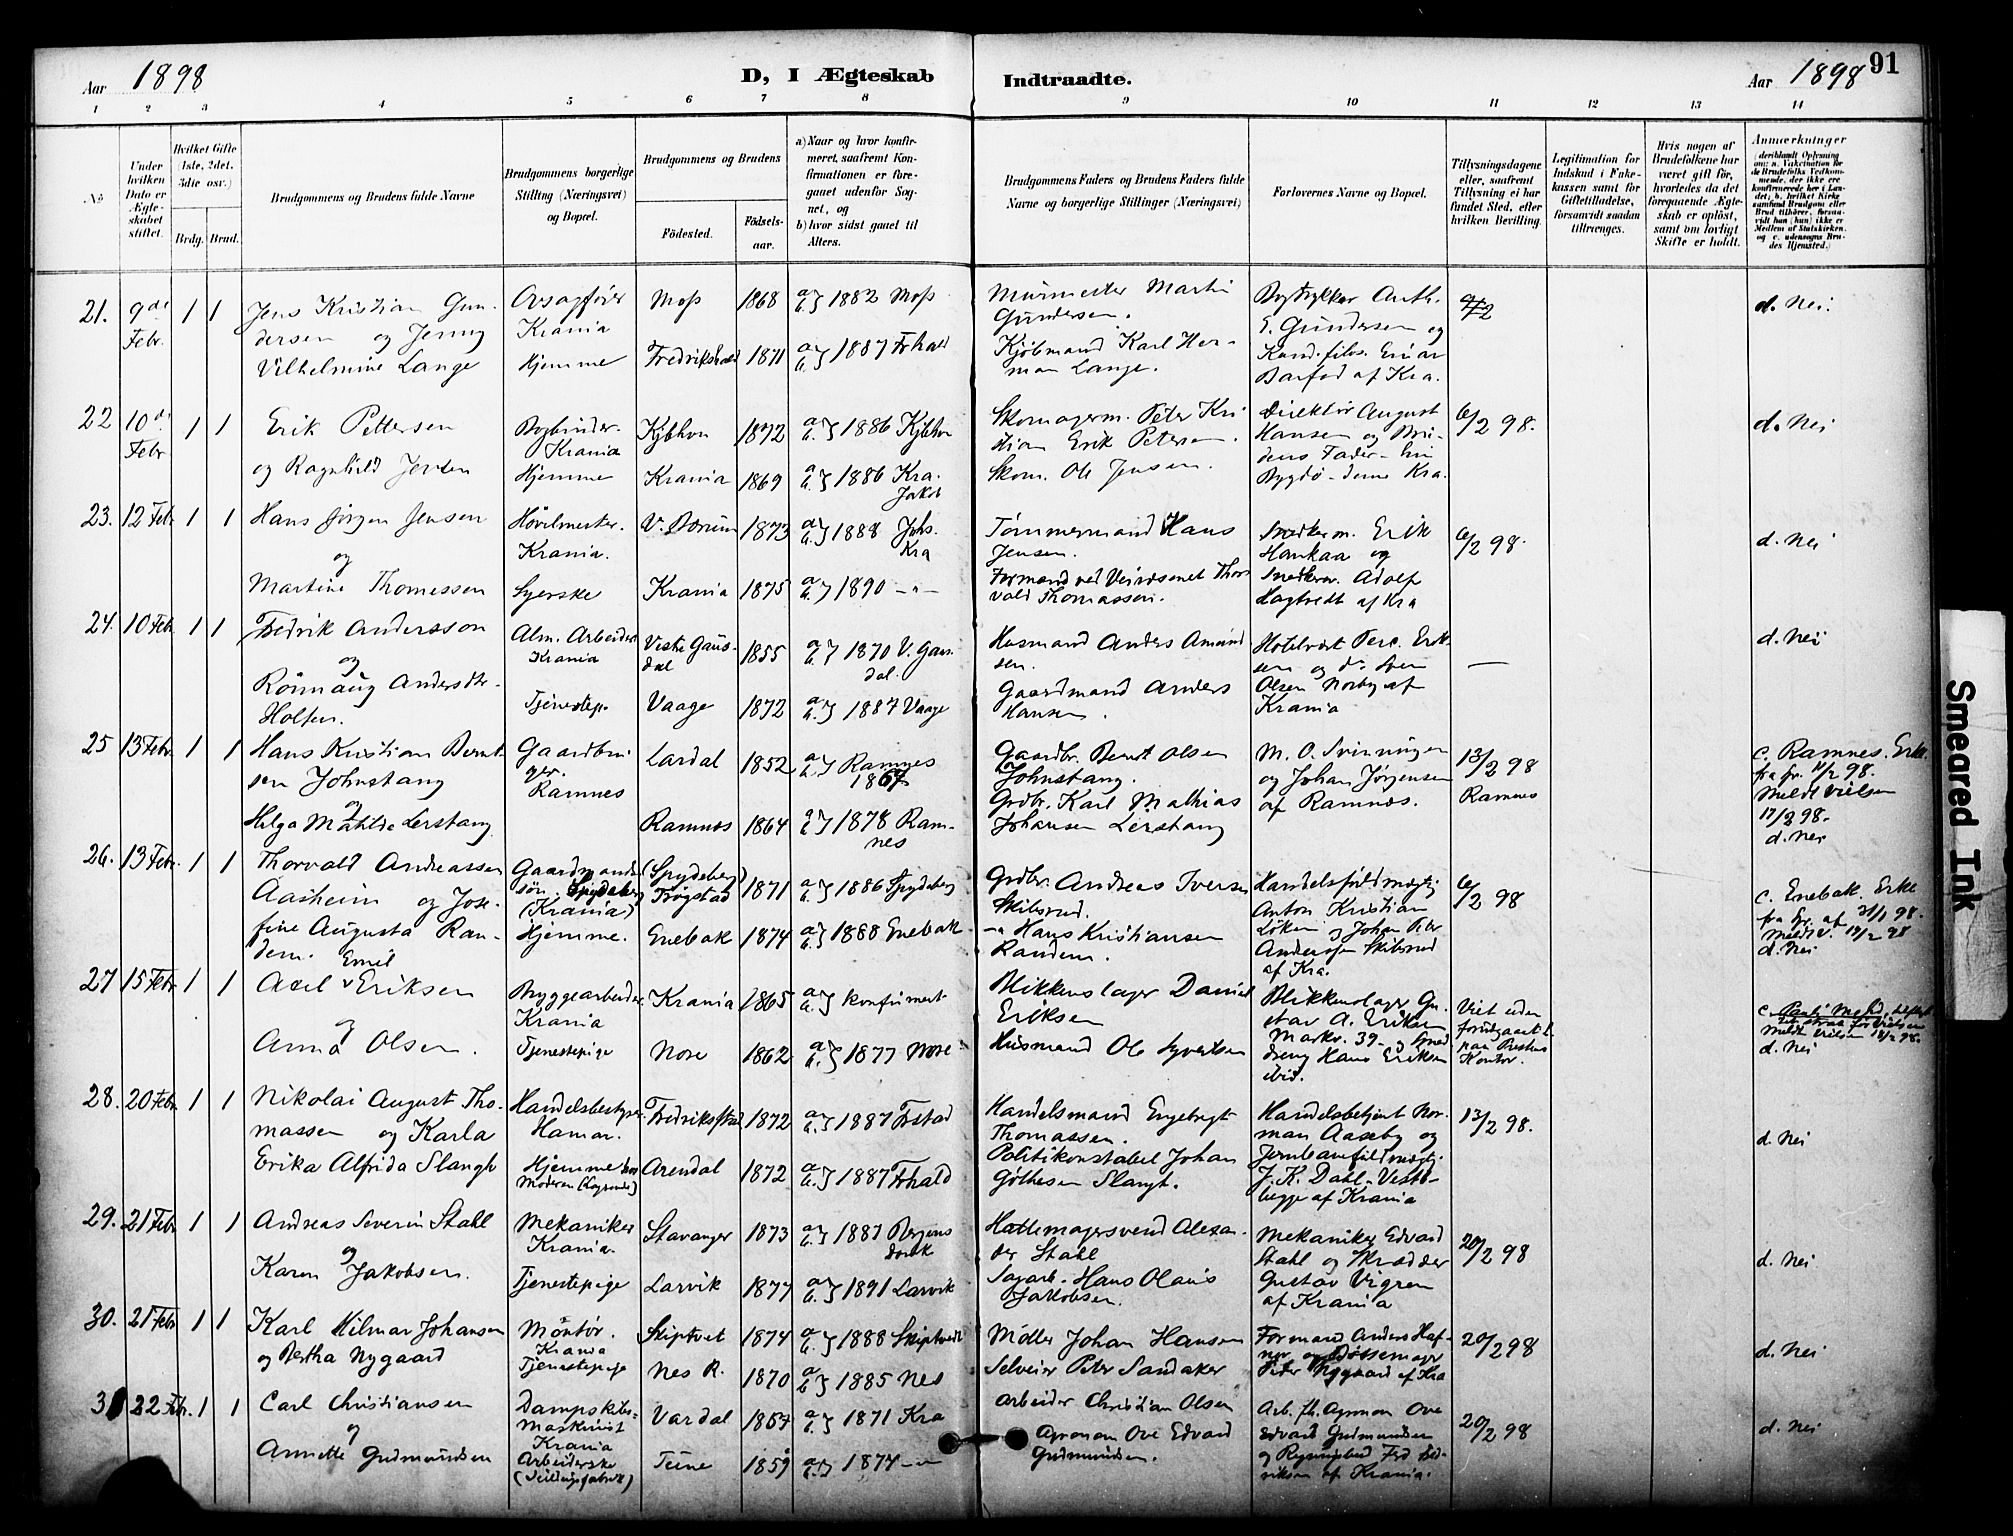 Aar 1898
D, I Ægteskab
Indtraadte.
Aar 1898
91
1 2 3 4 5 6 7 8 9 10 11 12 13 14
No
Under hvilken Dato er Ægteskabet stiftet.
Hvilket Gifte (1ste, 2det, 3die osv.)
Brdg. Brud.
Brudgommens og Brudens fulde Navne
Brudgommens borgerlige Stilling (Næringsvei) og Bopæl.
Brudgommens og Brudens
Fødested.
Fødselsaar.
a) Naar og hvor konfirmeret, saafremt Konfirmationen er foregaaet udenfor Sognet, og
b) hvor sidst gaaet til Alters.
Brudgommens Faders og Brudens Faders fulde Navne og borgerlige Stillinger (Næringsvei)
Forlovernes Navne og Bopæl.
Tillysningsdagene eller, saafremt Tillysning ei har fundet Sted, efter hvilken Bevilling.
Legitimation for Indskud i Enkekassen samt for Giftetilladelse, forsaavidt saadan tiltrænges.
Hvis nogen af Brudefolkene har været gift før, hvorledes da det foregaaende Ægteskab er opløst, samt om lovligt Skifte er holdt.
Anmærkninger
21. 9de Febr. 1 1 Jens Kristian Gundersen og Jenny Vilhelmine Lange
Krania
Hjemme
Moss 1868 1882 Moss
Fredrikshald 1871 1887 Frhald
Murmester Martin Gundersen.
Kjøbmand Karl Herman Lange.
Bogtrykker Anth. E. Gundersen og Kand. filos. Einar Barfod af Kra.
d. Nei.
22 10de Febr 1 1 Erik Pettersen og Ragnhild Jensen
Bogbinder. Krania
Hjemme
Kjbhvn 1872 1886 Kjbhvn
Krania 1869 1886 Kra. Jakob
Skomagerm. Peter Kristian Erik Petersen.
Skom. Ole Jensen.
Direktør August Hansen og Brudens Fader
6/2 98.
d. Nei
23. 12 Febr 1 1 Hans Jørgen Jensen og Martine Thomessen
Høvelmester. Krania.
Syerske
V. Bærum 1873 1888 Johs. Kra
Krania 1875 1890 -"-
Tømmermand Hans Jensen.
Formand ved Veivæsenet Thorvald Thomassen.
Snedkerm. Erik Haukaa og Snedkersv. Adolf Hagtvedt af Kra
6/2 98.
d. Nei
24. 10 Febr 1 1 Fredrik Andersson og Rønnaug Andersdtr. Holten.
Alm. Arbeider Krania
Tjenestep.
Vestre Gausdal 1855 1870 V. Gausdal.
Vaage 1872 1887 Vaage
Husmand Anders Amundsen.
Gaardmand Anders Hansen.
Olsen Norby af Krania
—
d. Nei
25 13 Febr. 1 1 Hans Kristian Berntsen Johnstang og Helga Mathilde Lerstang
Gaardbruger. Ramnes
Lardal 1852 Ramnes 1867
Ramnes 1864 1878 Ramnes
Gaardbr. Bernt Olsen Johnstang.
Grdbr. Karl Mathias Johansen Lerstang
M. O. Svinningen og Johan Jørgensen af Ramnes.
13/2 98 Ramnes
c. Ramnes. Erkl. fra Spr. 11/2 98. Meldt Vielsen 17/2 98.
d. Nei
26. 13 Febr. 1 1 Thorvald Andreassen Aasheim og Josefine Augusta Randem.
Gaardmandssøn. Spydeberg (Krania)
Hjemme.
(Spydeberg) Trøgstad 1871 1886 Spydeberg
Enebak 1874 1888 Enebak
Grdbr. Andreas Iversen Skibsrud.
-"- Hans Kristiansen Randem.
Handelsfuldmægtig Anton Kristian Løken og Johan Peter Andersen Skibsrud af Kra.
6/2 98
c. Enebak. Erkl. fra Spr. af 31/1 98. Meldt V. 19/2 98
d. Nei
27 15 Febr 1 1 Axel Emil Eriksen og Anna Olsen.
Byggearbeider Krania
Tjenestepige
Krania 1865 konfirmert
Nore 1862 1877 Nore
Blikkenslager Daniel Eriksen
Husmand Ole Syvertsen
Blikkenslager Gustav A. Eriksen Markv. 39 og Smeddreng Hans Eriksen ibid.
Viet uden forudgaaet L. paa Prestens Kontor.
d. Nei
28. 20 Febr 1 1 Nikolai August Thomassen og Karla Erika Alfrida Slangh
Handelsbestyrer Hamar.
Hjemme hos Moderen
Fredriksstad 1872 1887 Frstad
Arendal 1872 1887 Frhald
Handelsmand Engebregt Thomassen.
Politikonstabel Johan Gøthesen Slangh.
Handelsbetjent Norman Aaseby og Jernbanefuldmægtig J. K. Dahl-Vestb. begge af Krania
13/2 98.
d. Nei
29. 21 Febr 1 1 Andreas Severin Stahl og Karen Jakobsen.
Mekaniker Krania.
Tjenestepige
Stavanger 1873 1887 Bergens Domk
Larvik 1877 1891 Larvik
Hattemagersvend Alexander Stahl
Sagarb. Hans Olaus Jakobsen.
Mekaniker Edvard Stahl og Skrædder Gustav Vigren af Krania
20/2 98
d. Nei
30. 21 Febr 1 1 Karl Hilmar Johansen og Bertha Nygaard
Montør. Krania
Tjenestepige
Skiptvet 1874 1888 Skiptvedt
Nes R. 1870 1885 Nes
Møller Johan Hansen
Selveier Peter Sandaker
Formand Anders Hafner og Børstemager Peder Nygaard af Kra
20/2 98
d. Nei
31 22 Feb. 1 1 Carl Christiansen og Annette Gudmundsen
Dampskibs-Maskinist Krania
Arbeiderske (Seildugsfabrik)
Vardal 1857 1871 Kra
Teine 1859 1874 -"-
Arbeider Christian Olsen
Agronom Ove Edvard Gudmundsen.
Arb. fh. Agronom Ove Edvard Gudmundsen
af Krania.
20/2 98
d. Nei
Smeared Ink